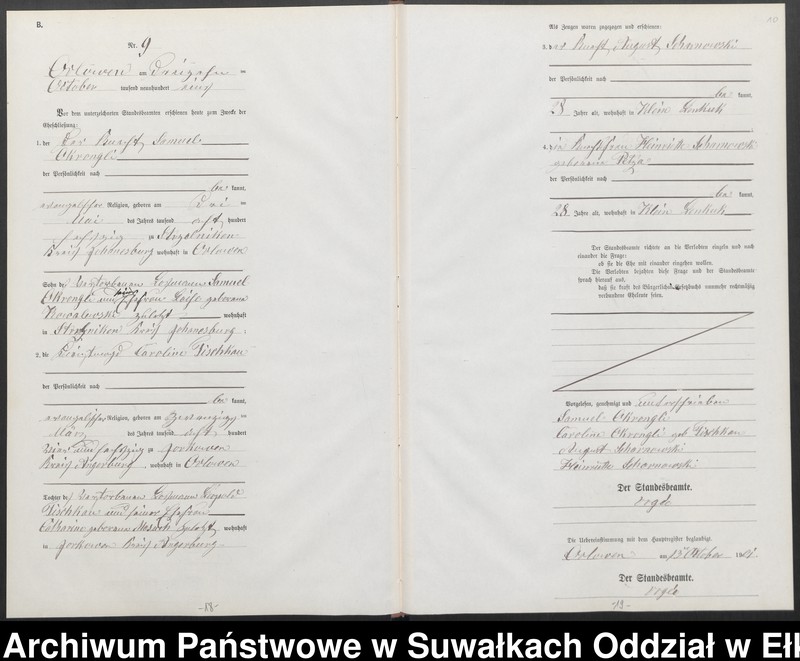 B.
Nr. 9
Orlowen am Dreizehn ten
October tausend neunhundert eins
Vor dem unterzeichneten Standesbeamten erschienen heute zum Zwecke der
Eheschließung:
1. der Knecht Samuel
Okrongli
der Persönlichkeit nach
be kannt,
evangelischer Religion, geboren am drei ten
Mai des Jahres tausend acht hundert
sechszig zu
Kreis Johannesburg wohnhaft in Orlowen
Sohn des verstorbenen Losmann Samuel
Okrongli und Ehefrau Louise geborene
Kowalewski zuletzt wohnhaft
in Kreis Johannesburg.
2. die Dienstmagd Caroline Tischkau
der Persönlichkeit nach
be kannt,
evangelischer Religion, geboren am ten
März des Jahres tausend acht hundert
vier und sechszig zu Jorkowen
Kreis Angerburg, wohnhaft in Orlowen
Tochter des verstorbenen Losmann
Tischkau und seiner Ehefrau
Catharine geborenen zuletzt wohnhaft
in Jorkowen Kreis Angerburg.
-18-
10
Als Zeugen waren zugezogen und erschienen:
3. der Knecht August Scharnowski
der Persönlichkeit nach
be kannt,
28 Jahre alt, wohnhaft in Klein Lenkuk
4. die Knechtfrau Heinriette Scharnowski
geborene
der Persönlichkeit nach
be kannt,
28 Jahre alt, wohnhaft in Klein Lenkuk
Der Standesbeamte richtete an die Verlobten einzeln und nach
einander die Frage:
ob sie die Ehe mit einander eingehen wollen.
Die Verlobten bejahten diese Frage und der Standesbeamte
sprach hierauf aus,
daß sie kraft des Bürgerlichen Gesetzbuchs nunmehr rechtmäßig
verbundene Eheleute seien.
Vorgelesen, genehmigt und unterschrieben
Samuel Okrongli
Caroline Okrongli geb Tischkau
August Scharnowski
Heinriette Scharnowski
Der Standesbeamte.
Die Uebereinstimmung mit dem Hauptregister beglaubigt.
Orlowen am 13 Oktober 1901.
Der Standesbeamte.
-19-
Archiwum Państwowe w Suwałkach Oddział w Ełk